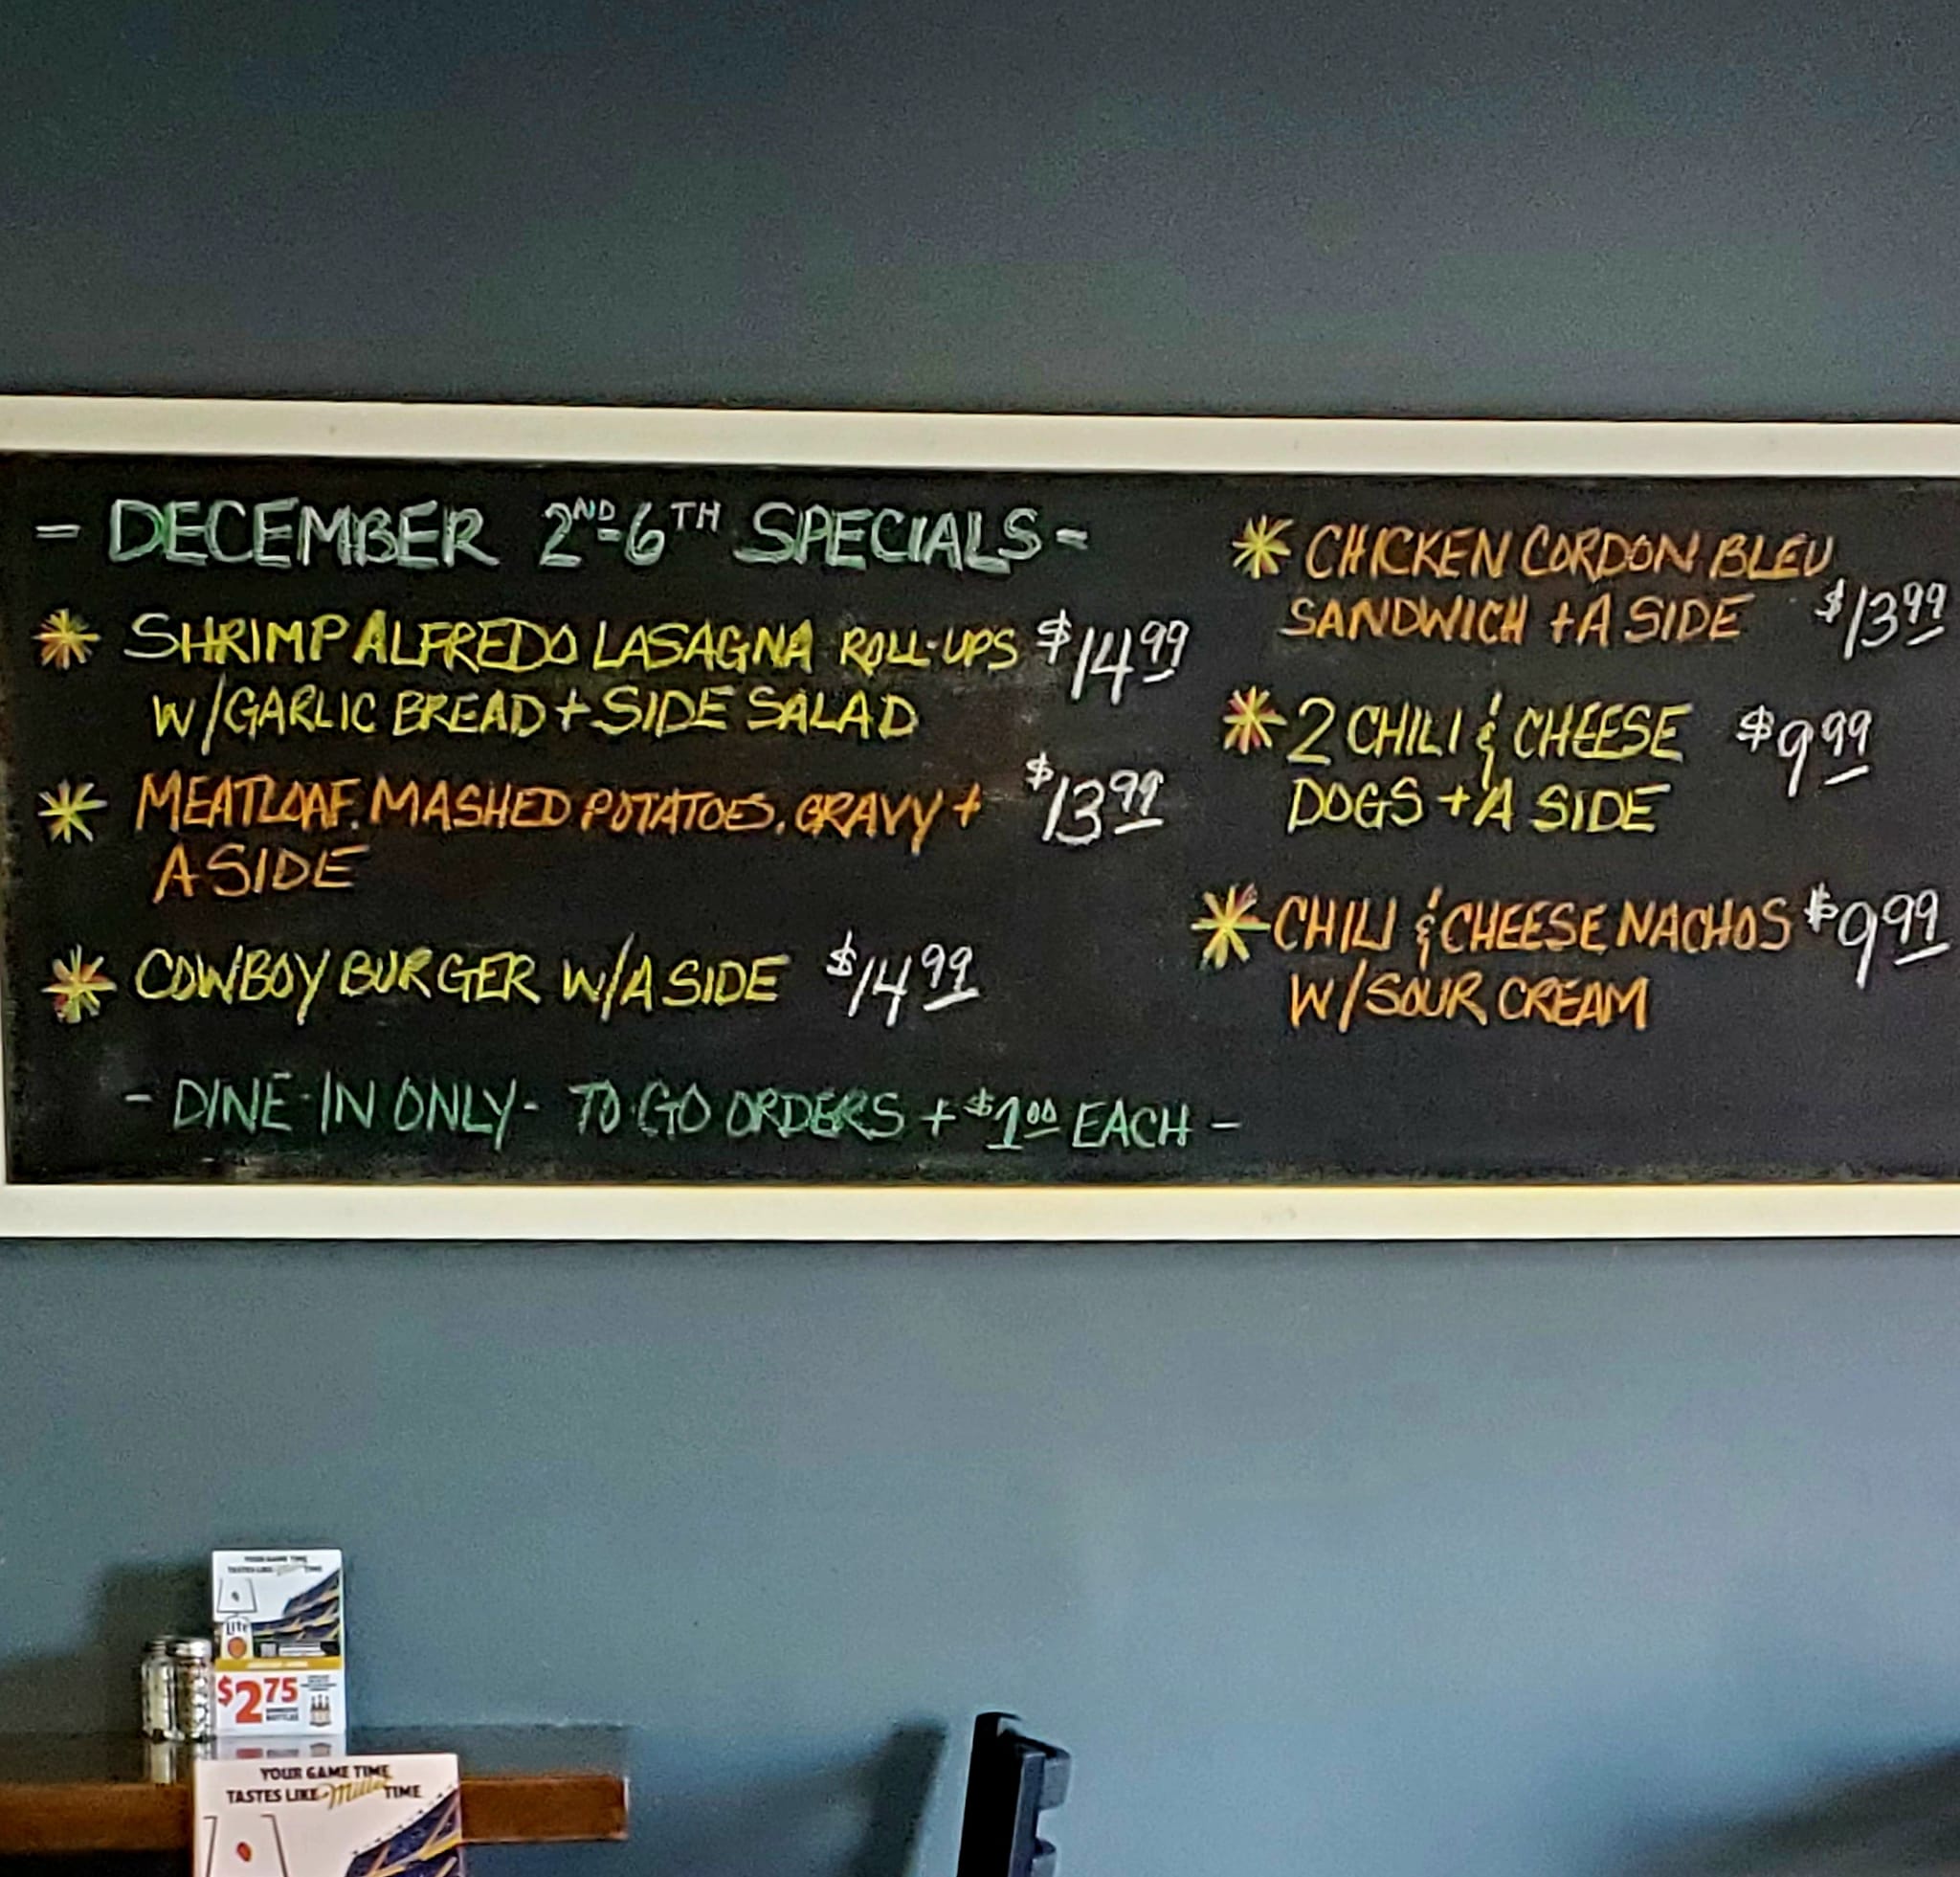 - DECEMBER 2ND-6TH SPECIALS -
* SHRIMP ALFREDO LASAGNA ROLL-UPS $14.99
W/GARLIC BREAD + SIDE SALAD
* MEATLOAF, MASHED POTATOES, GRAVY + $13.99
A SIDE
* COWBOY BURGER W/A SIDE $14.99
* CHICKEN CORDON BLEU
SANDWICH + A SIDE $13.99
* 2 CHILI & CHEESE $9.99
DOGS + A SIDE
* CHILI & CHEESE NACHOS $9.99
W/SOUR CREAM
- DINE-IN ONLY - TO-GO ORDERS + $1.00 EACH -
YOUR GAME TIME
TASTES LIKE Miller TIME
Lite
$2.75
YOUR GAME TIME
TASTES LIKE Miller TIME